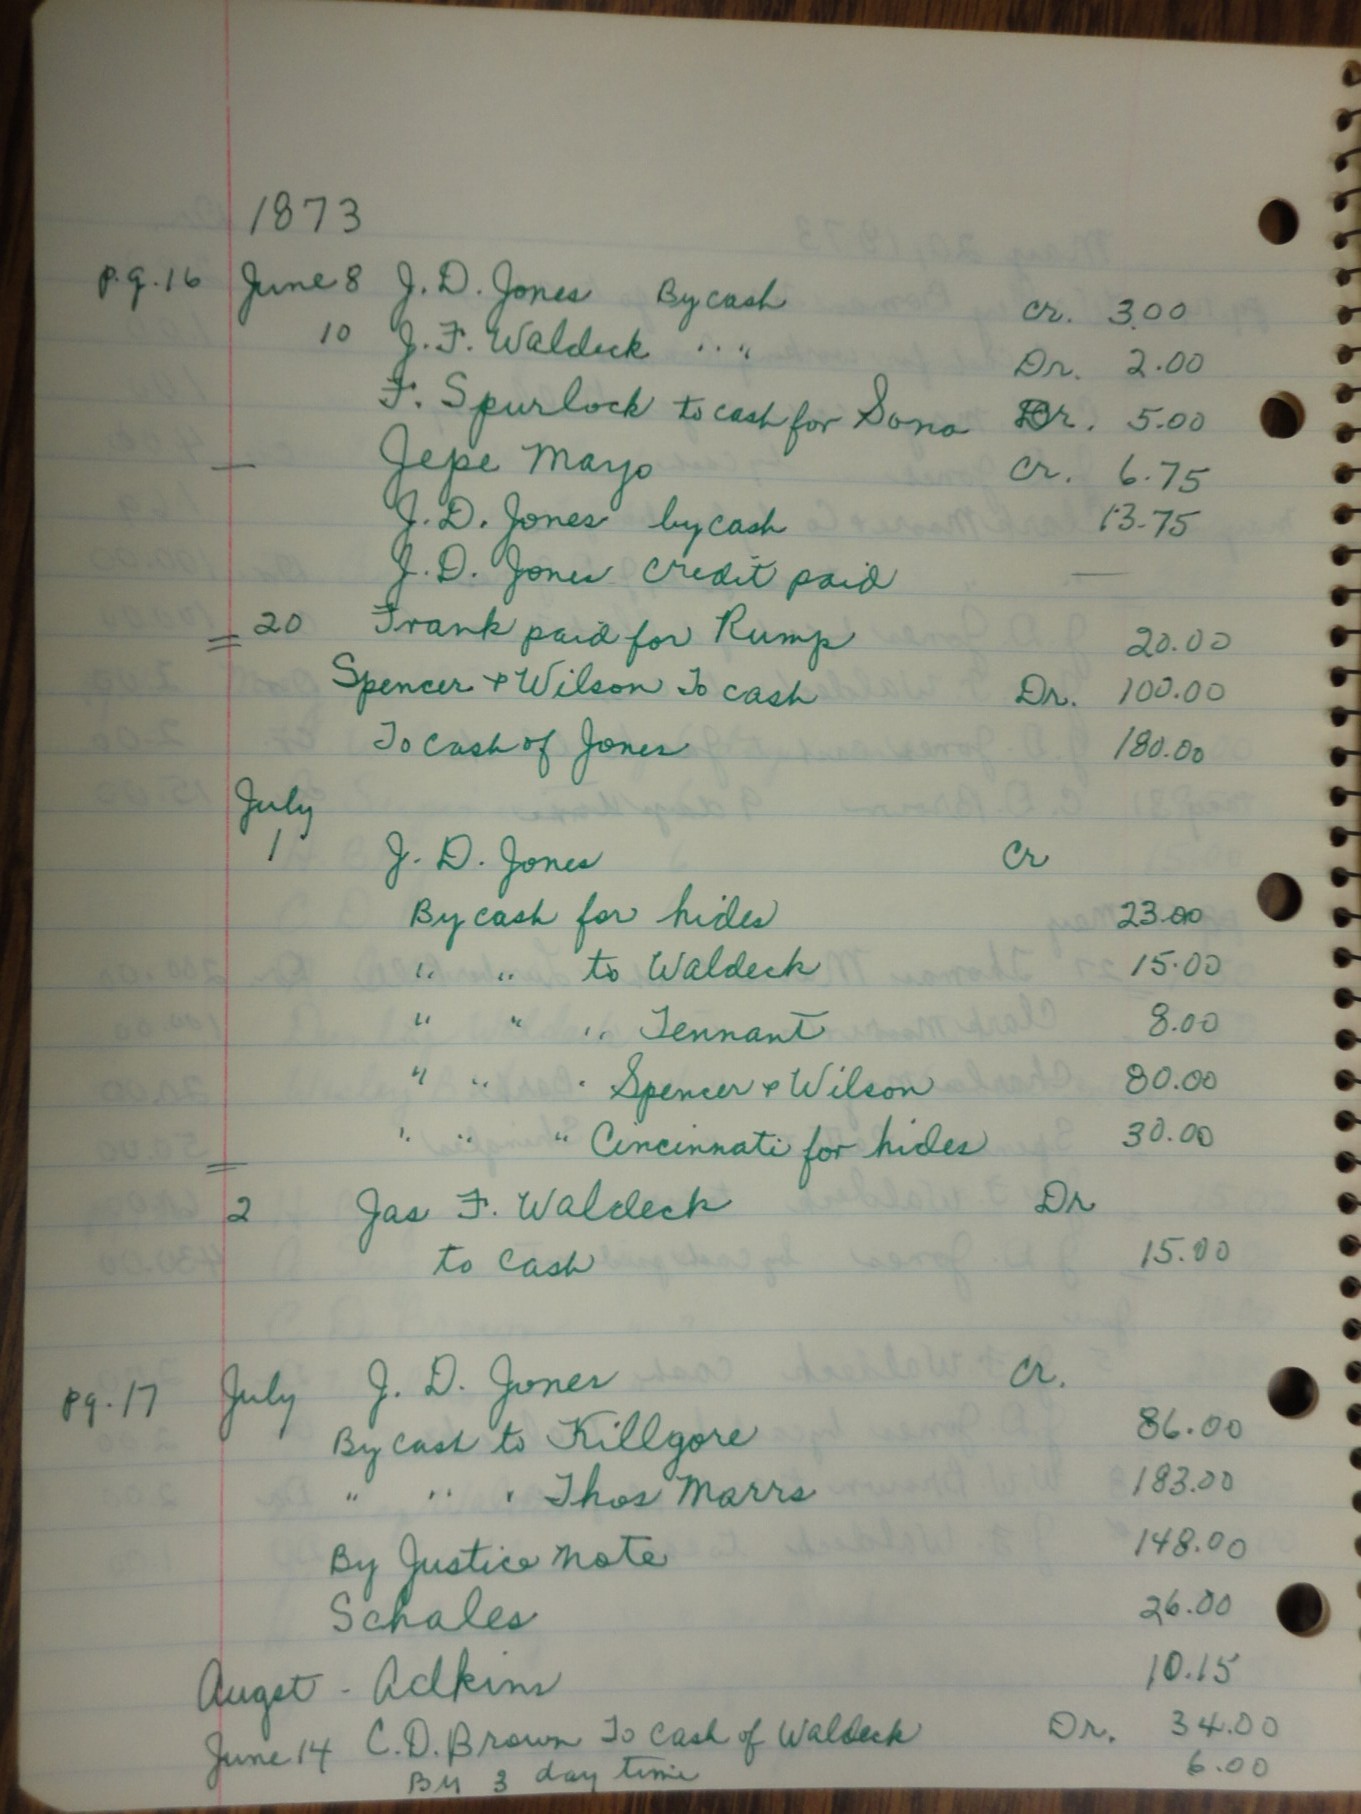 1873
p.g.16 June 8 J. D. Jones By cash cr. 3.00
10 J. F. Waldeck " " Dr. 2.00
F. Spurlock to cash for Dr. 5.00
— Jepe Mayo cr. 6.75
J. D. Jones by cash 13.75
J. D. Jones credit paid —
= 20 Frank paid for Rump 20.00
Spencer & Wilson To cash Dr. 100.00
To cash of Jones 180.00
July
1 J. D. Jones Cr
By cash for hides 23.00
" " to Waldeck 15.00
" " " Tennant 8.00
" " " Spencer & Wilson 80.00
" " " Cincinnati for hides 30.00
=
2 Jas F. Waldeck Dr
to cash 15.00
pg. 17 July J. D. Jones Cr.
By cash to Killgore 86.00
" " " Thos Marrs 183.00
By Justice note 148.00
Schales 26.00
Augst - Adkins 10.15
June 14 C. D. Brown To cash of Waldeck Dr. 34.00
By 3 day time 6.00